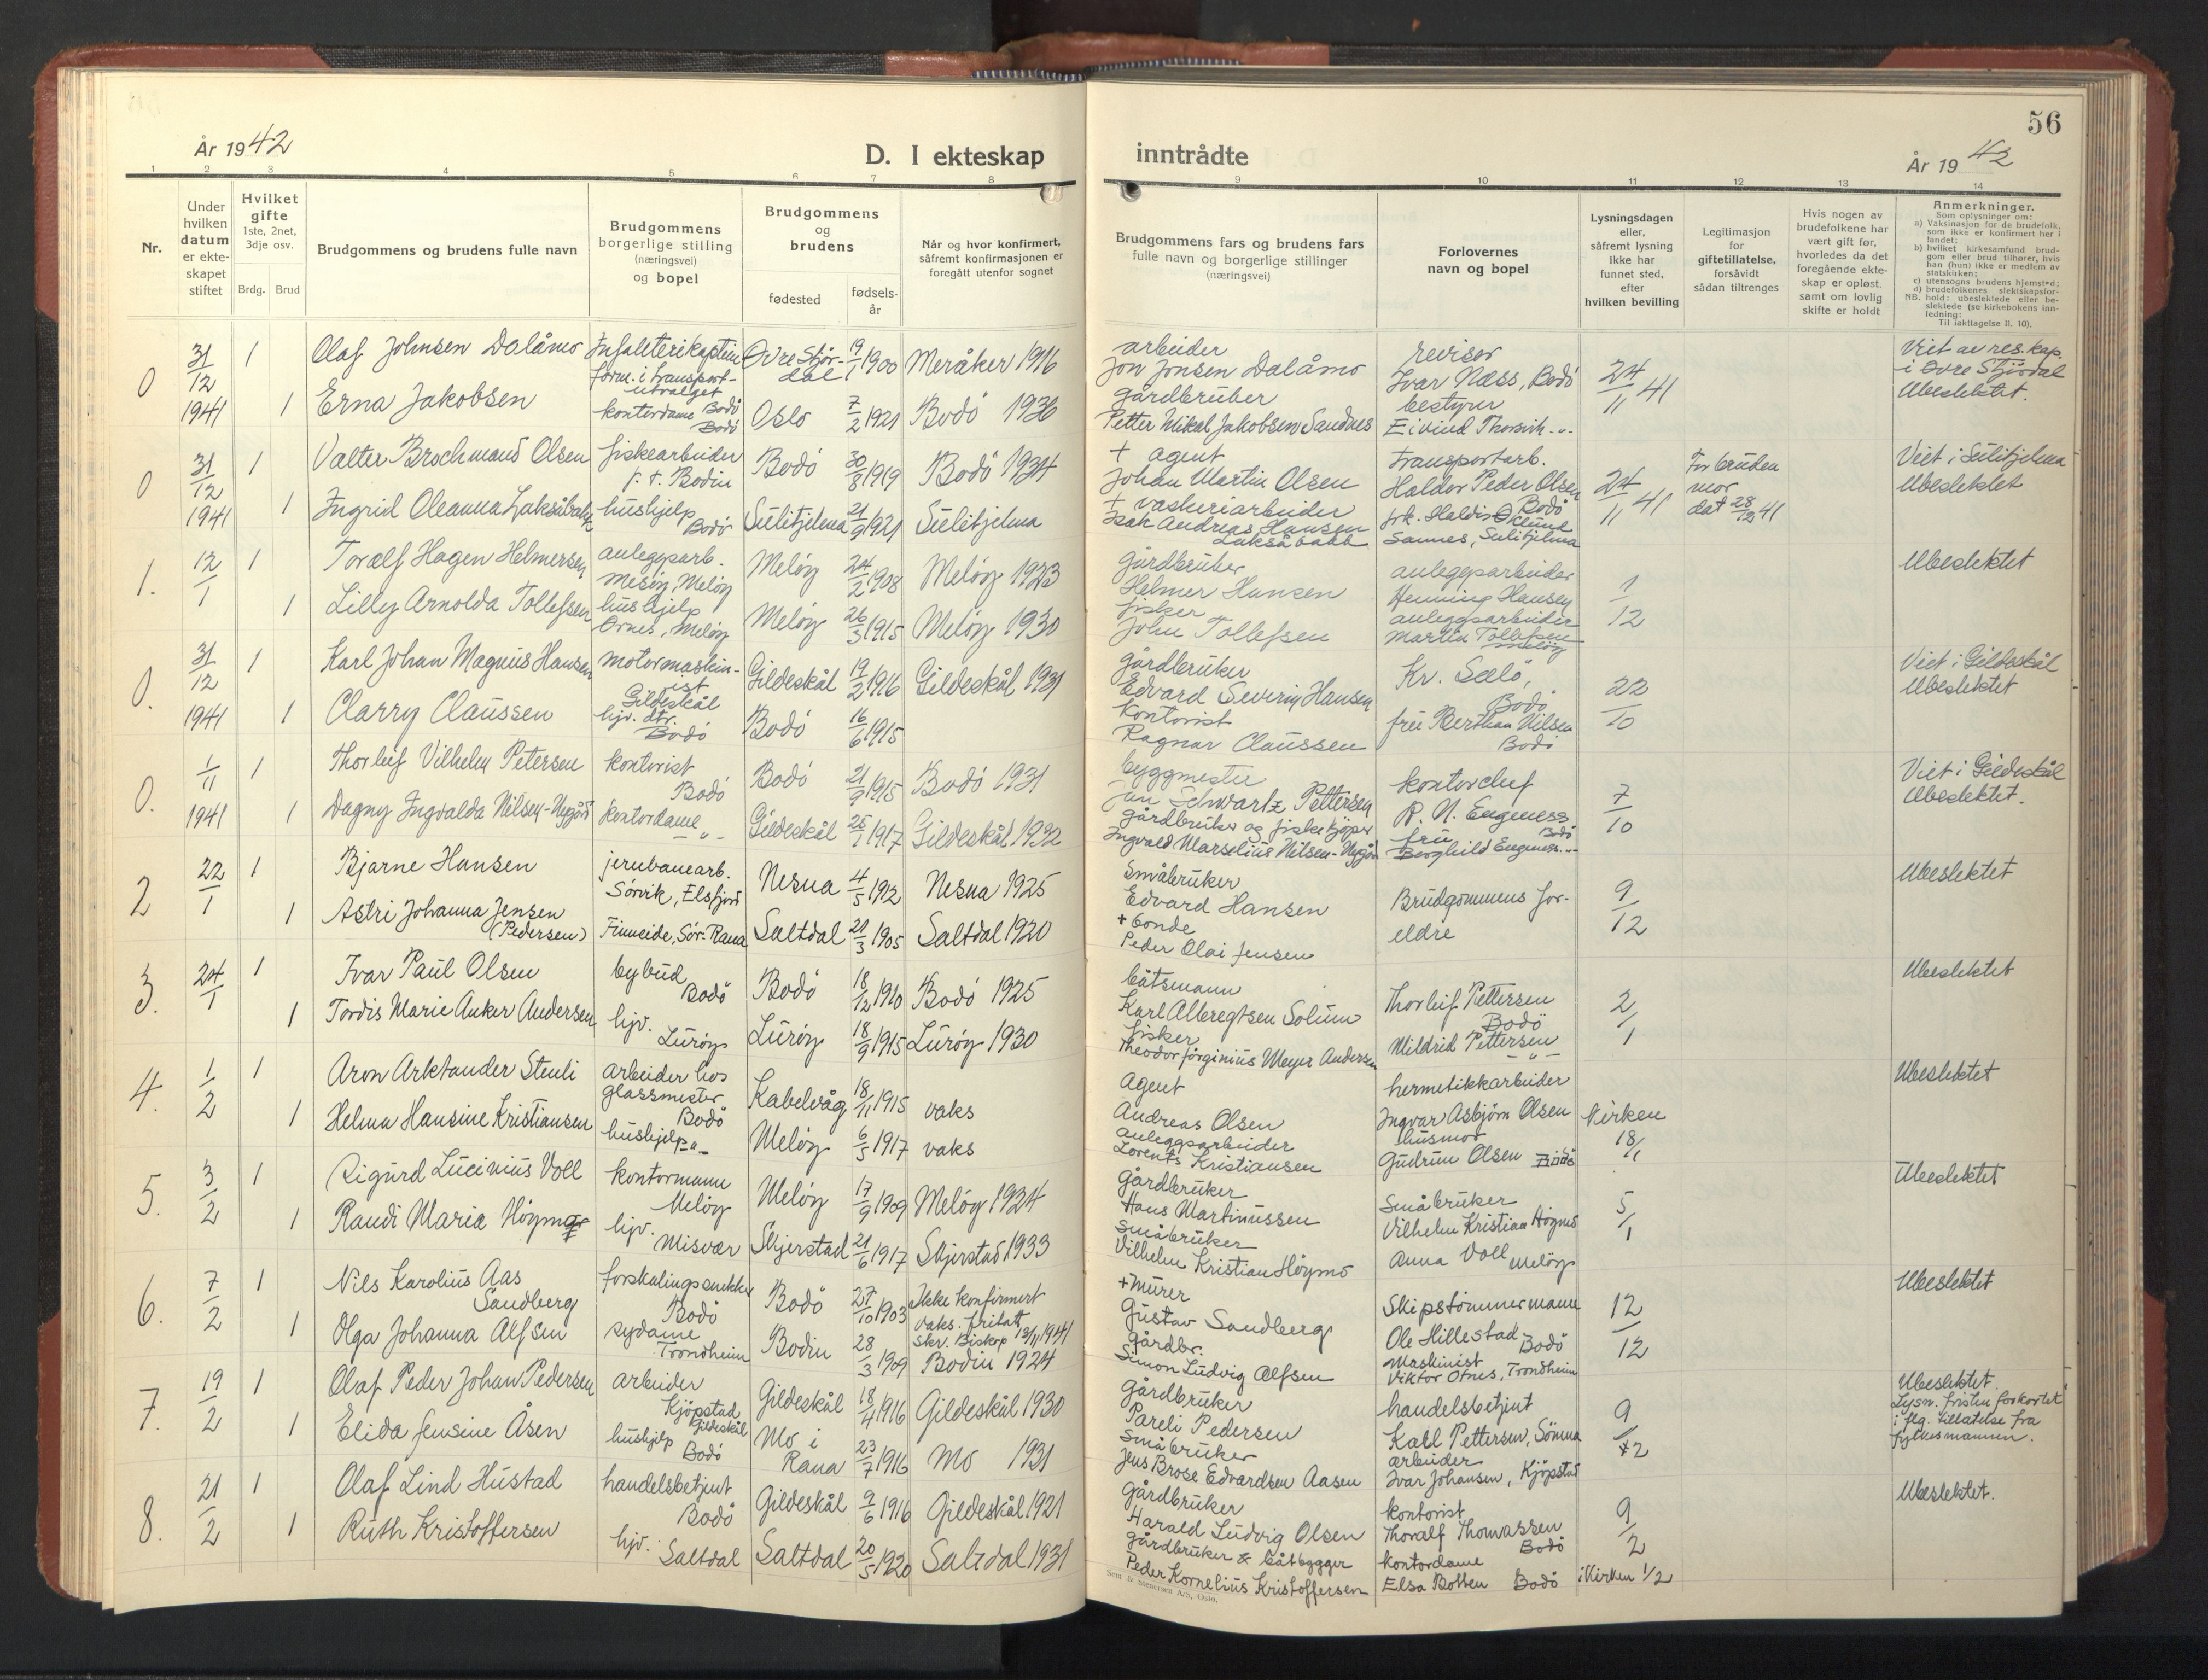 56
År 1942
D. I ekteskap
inntrådte
År 1942
1 2 3 4 5 6 7 8 9 10 11 12 13 14
Nr.
Under hvilken datum er ekteskapet stiftet
Hvilket gifte
1ste, 2net, 3dje osv.
Brdg. Brud
Brudgommens og brudens fulle navn
Brudgommens borgerlige stilling (næringsvei) og bopel
Brudgommens og brudens
fødested
fødselsår
Når og hvor konfirmert, såfremt konfirmasjonen er foregått utenfor sognet
Brudgommens fars og brudens fars fulle navn og borgerlige stillinger (næringsvei)
Forlovernes navn og bopel
Lysningsdagen eller, såfremt lysning ikke har funnet sted, efter hvilken bevilling
Legitimasjon for giftetillatelse, forsåvidt sådan tiltrenges
Hvis nogen av brudefolkene har vært gift før, hvorledes da det foregående ekteskap er opløst. samt om lovlig skifte er holdt
Anmerkninger.
Som oplysninger om:
a) Vaksinasjon for de brudefolk, som ikke er konfirmert her i landet;
b) hvilket kirkesamfund brudgom eller brud tilhører, hvis han (hun) ikke er medlem av statskirken;
c) utensogns brudens hjemsted;
d) brudefolkenes slektskapsforhold: ubeslektede eller beslektede (se kirkebokens innledning:
NB.
Til iakttagelse II. 10).
0 31/12 1941
1 Olaf Johnsen Dalåmo
Infanterikaptein form. i transport-utvalget
Øvre Stjördal 19/1 1900 Meråker 1916
1 Erna Jakobsen
kontordame Bodö Bodö
Oslo 7/2 1921 Bodö 1936
arbeider
Jon Jonsen Dalåmo
gårdbruker
Petter Mikal Jakobsen Sandnes
revisor
Ivar Næss, Bodö
bestyrer
Eivind Thorvik -"-
24/11 41
Viet av res. kap. i Övre Stjördal
Ubeslektet.
0 31/12 1941
1 Valter Brochmand Olsen
fiskearbeider p.t. Bodin
Bodö 30/8 1919 Bodö 1934
1 Ingrid Oleanna Laksåbakk
hushjelp Bodö
Sulitjelma 21/9 1921 Sulitjelma
+ agent
Johan Martin Olsen
+ vaskeriarbeider
Isak Andreas Hansen Laksåbakk
transportarb.
Haldor Peder Olsen Bodö
frk. Haldis Eklund
Sannes, Sulitjelma
24/11 41
For bruden mor dat 28/12 41
Viet i Sulitjelma
Ubeslektet
1. 12/1
1 Toralf Hagen Helmersen
anleggsarb. Mesöy, Melöy
Melöy 24/2 1908 Melöy 1923
1 Lilly Arnolda Tollefsen
hushjelp Örnes, Melöy
Melöy 26/3 1915 Melöy 1930
gårdbruker
Helmer Hansen
fisker
John Tollefsen
anleggsarbeider
Henning Hansen
anleggsarbeider
Martin Tollefsen Melöy
1/12
Ubeslektet
0. 31/12 1941
1 Karl Johan Magnus Hansen
motormaskinist Gildeskål
Gildeskål 19/2 1916 Gildeskål 1931
1 Clarry Claussen
hjv. dtr. Bodö
Bodö 16/6 1915
gårdbruker
Edvard Severin Hansen
Kontorist
Ragnar Claussen
Kr. Sælö, Bodö
fru Berthan Nilsen
Bodö
22/10
Viet i Gildeskål
Ubeslektet
0. 1/11 1941
1 Thorleif Vilhelm Petersen
kontorist Bodö
Bodö 21/9 1915 Bodö 1931
1 Dagny Ingvalda Nilsen-Nygård
kontordame -"-
Gildeskål 25/1 1917 Gildeskål 1932
byggmester
Jan Schwartz Pettersen
gårdbruker og fiskekjöper
Ingvald Marselius Nilsen-Nygård
kontorchef
R. N. Engmess Bodö
fru
Borghild Engmess -"-
7/10
Viet i Gildeskål
Ubeslektet.
2 22/1
1 Bjarne Hansen
jernbanearb. Sörvik, Elsfjord
Nesna 4/5 1912 Nesna 1925
1 Astri Johanna Jensen (Pedersen)
Finneide, Sör-Rana
Saltdal 21/3 1905 Saltdal 1920
Småbruker
Edvard Hansen
+ bonde
Peder Olai Jensen
Brudgommens foreldre
9/12
Ubeslektet
3. 24/1
1 Ivar Paul Olsen
bybud Bodö
Bodö 18/12 1910 Bodö 1925
1 Tordis Marie Anker Andersen
hjv. Luröy
Luröy 18/9 1915 Luröy 1930
båtsmann
Karl Albregtsen Solum
fisker
Theodor Jörginius Meyer Andersen
Thorleif Pettersen Bodö
Mildrid Pettersen -"-
2/1
Ubeslektet
4. 1/2
1 Aron Arktander Stenli
arbeider hos glassmester Bodö
Kabelvåg 18/11 1915 vaks
1 Helma Hansine Kristiansen
hushjelp -"-
Melöy 6/5 1917 vaks
Agent
Andreas Olsen
anleggsarbeider
Lorents Kristiansen
hermetikkarbeider
Ingvar Asbjörn Olsen
husmor
Gudrun Olsen Bodö
Kirken 18/1
Ubeslektet
5. 3/2
1 Sigurd Lucinius Voll
kontormann Melöy
Melöy 17/9 1909 Melöy 1924
1 Randi Maria Höymo
hjv. Misvær
Skjerstad 21/6 1917 Skjerstad 1933
gårdbruker
Hans Martinussen
småbruker
Vilhelm Kristian Höymo
Småbruker
Vilhelm Kristian Höymo
Anna Voll Melöy
5/1
Ubeslektet
6. 7/2
1 Nils Karolius Aas Sandberg
forskalingssnekker Bodö
Bodö 27/10 1903 Ikke konfirmert vaks. fritatt skr. Biskop 13/11 1941
1 Olga Johanna Alfsen
sydame Trondheim
Bodin 28/3 1909 Bodin 1924
+ murer
Gustav Sandberg
gårdbr.
Simon Ludvig Alfsen
Skipstömmermann
Ole Hillestad Bodö
Maskinist
Viktor Otnes, Trondheim
12/12
Ubeslektet
7. 19/2
1 Olaf Peder Johan Pedersen
arbeider Kjöpstad Gildeskål
Gildeskål 18/4 1916 Gildeskål 1930
1 Elida Jensine Åsen
hushjelp Bodö
Mo i Rana 23/7 1916 Mo 1931
gårdbruker
Pareli Pedersen
småbruker
Jens Brose Edvardsen Aasen
handelsbetjent
Kall Pettersen, Sömna
arbeider
Ivar Johansen, Kjöpstad
9/2
Ubeslektet.
Lysn. fristen forkortet i flg. tillatelse fra fylkesmannen.
8. 21/2
1 Olaf Lind Hustad
handelsbetjent Bodö
Gildeskål 9/6 1916 Gildeskål 1921
1 Ruth Kristoffersen
hjv. Saltdal
Saltdal 20/5 1920 Saltdal 1931
gårdbruker
Harald Ludvig Olsen
gårdbruker & båtbygger
Peder Kornelius Kristoffersen
kontorist
Thoralf Thomassen Bodö
kontordame
Elsa Botten Bodö
9/2
i Kirken 1/2
Ubeslektet.
Sem & Stenersen A/S, Oslo.